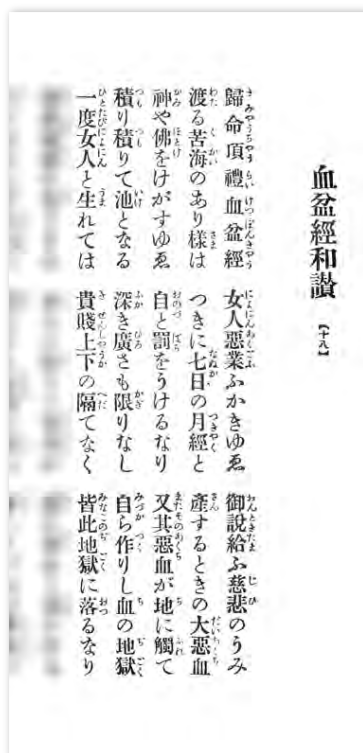 血盆經和讃 【十八】
歸命頂禮血盆經 女人惡業ふかきゆゑ 御說給ふ慈悲のうみ
渡る苦海のあり樣は つきに七日の月經と 產するときの大惡血
神や佛をけがすゆゑ 自と罰をうけるなり 又其惡血が地に觸て
積り積りて池となる 深き廣さも限りなし 自ら作りし血の地獄
一度女人と生れては 貴賤上下の隔てなく 皆此地獄に落るなり